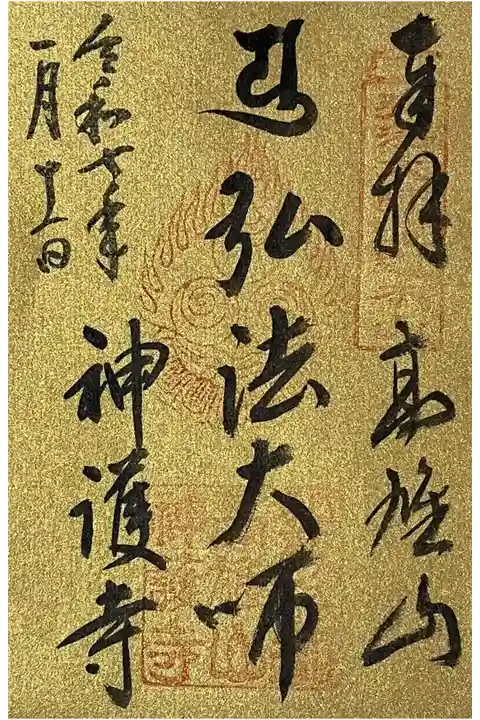 奉拝 高雄山
弘法大師
神護寺
令和七年
一月十二日